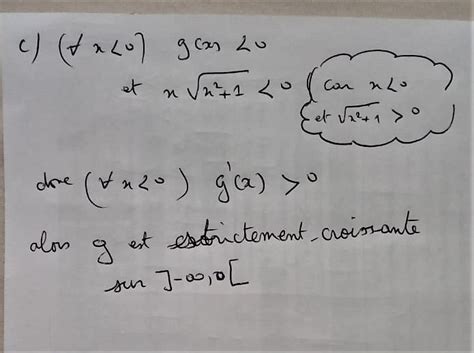 c) (∀ x<0) g(x) <0
et x√x²+1 <0 ( car x<0
et √x²+1 >0
donc (∀ x<0 ) g'(x) >0
alors g est strictement croissante
sur ]-∞,0[